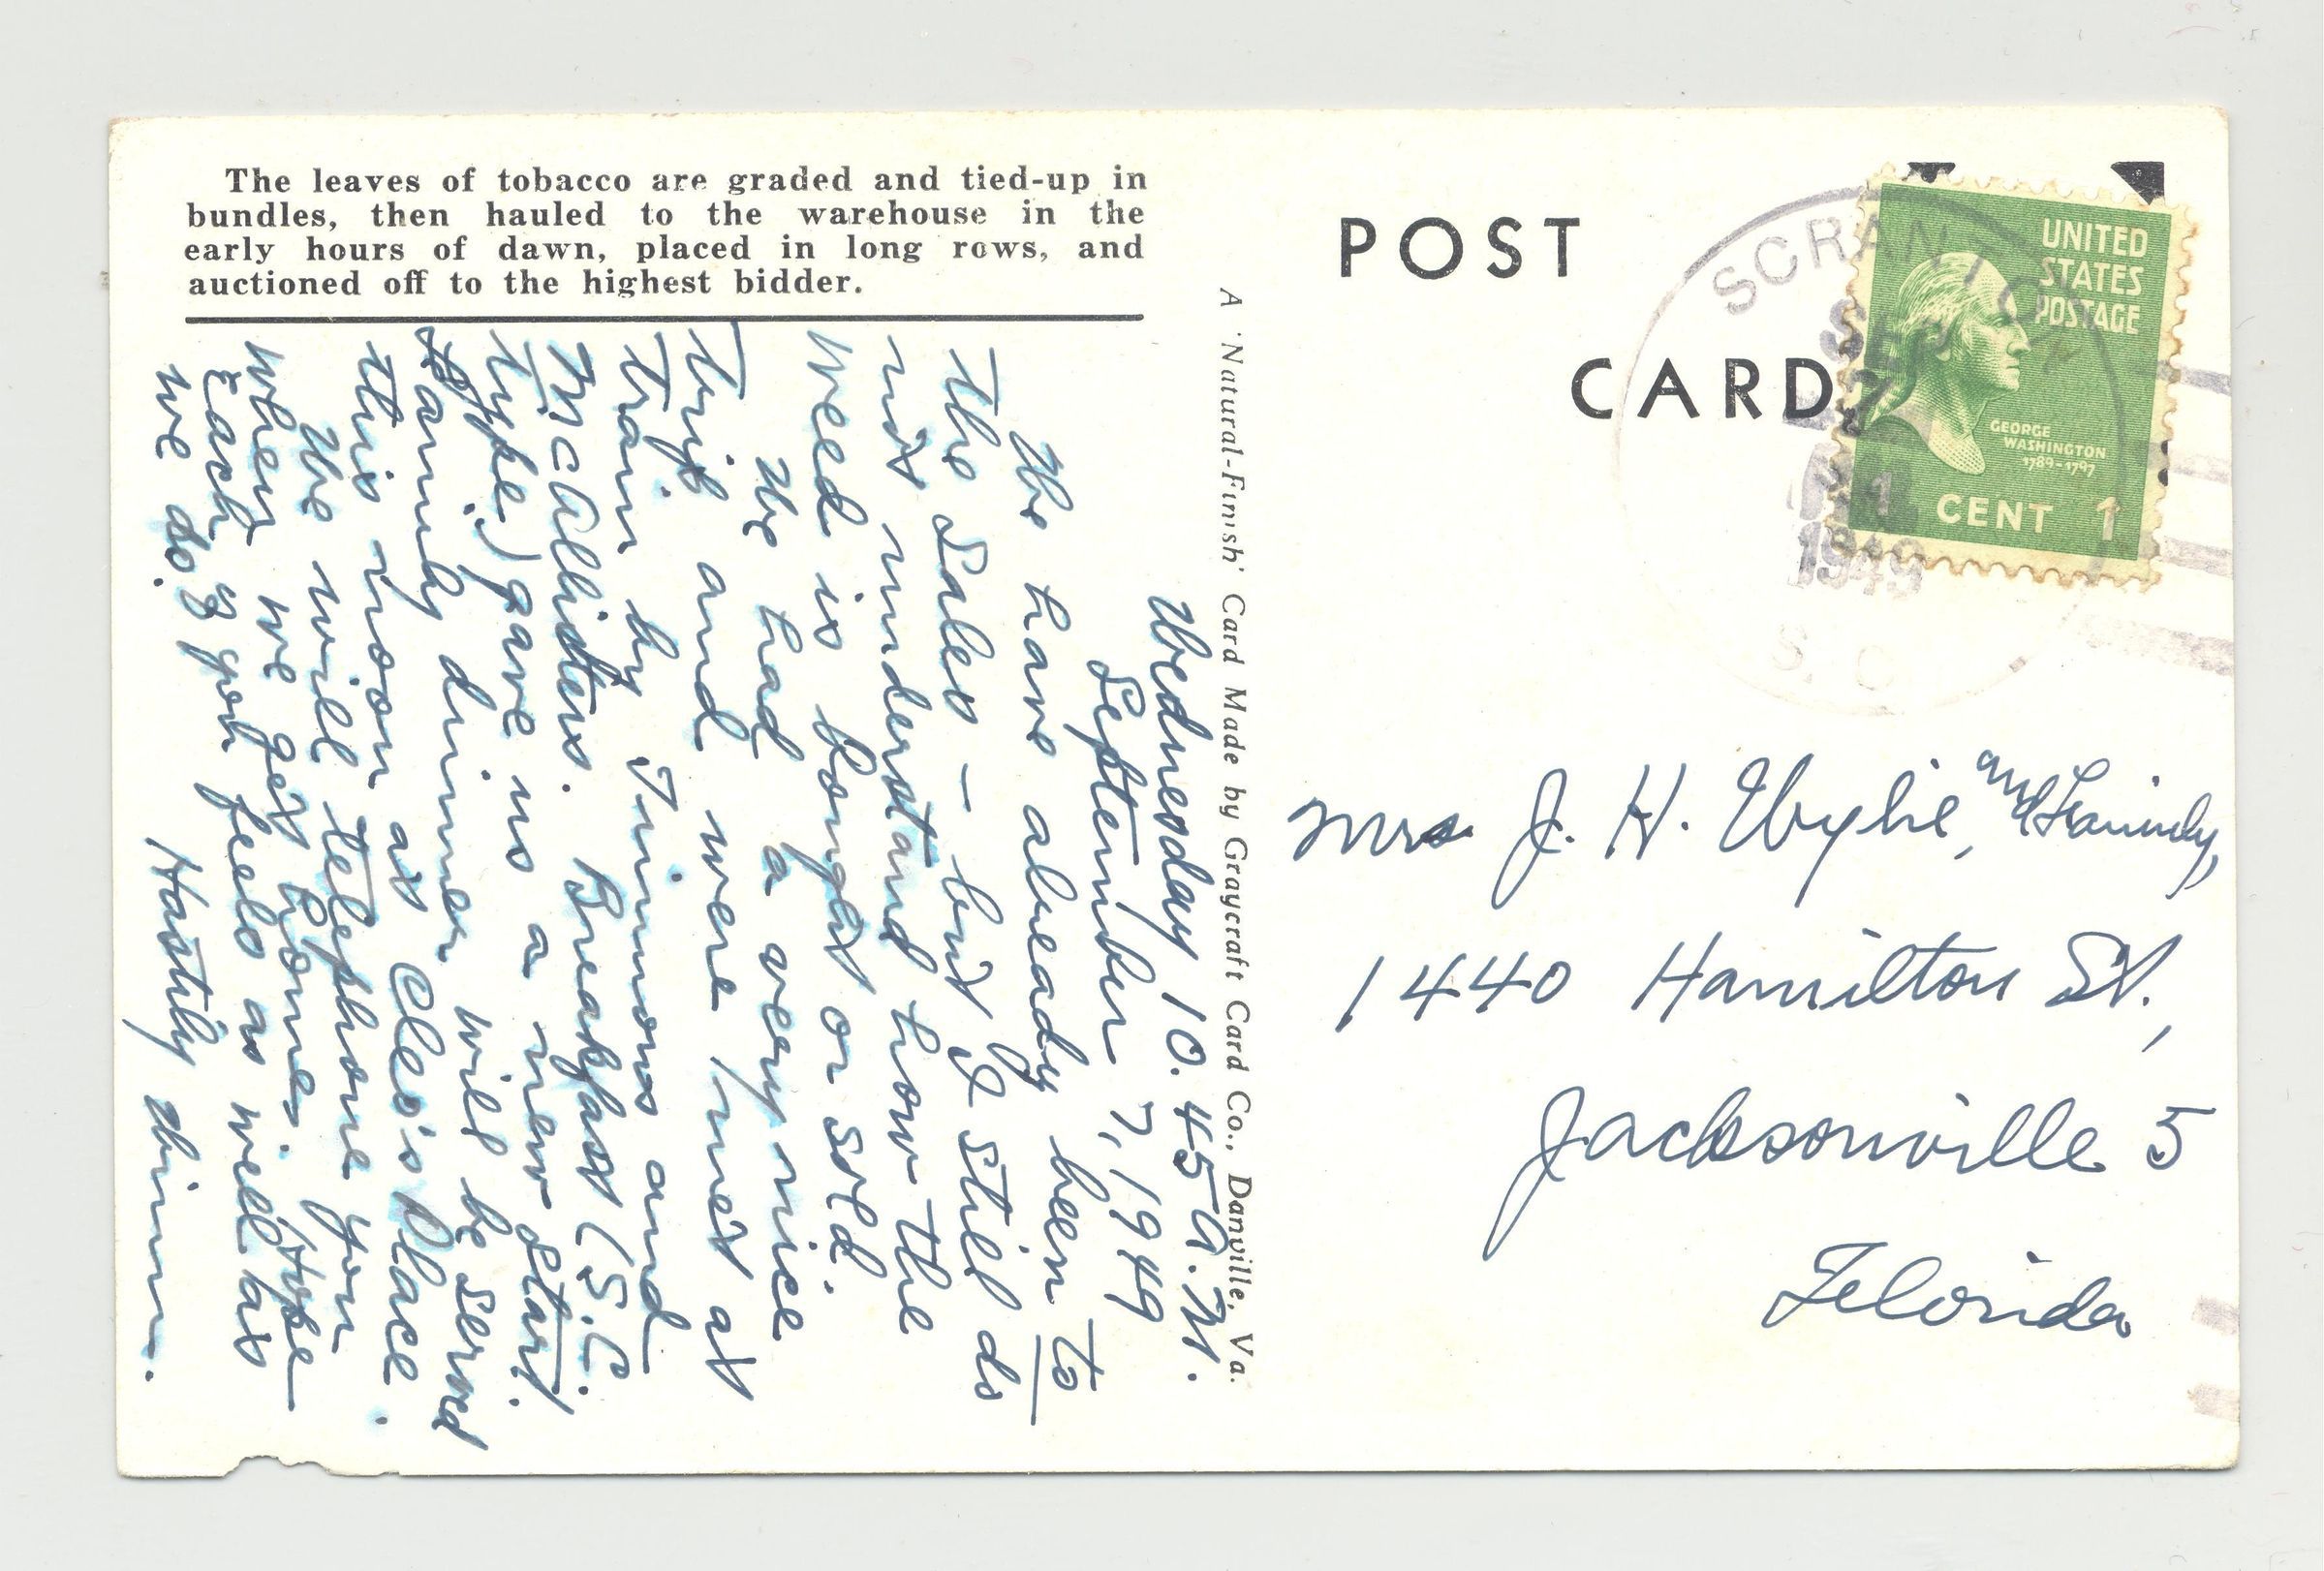 The leaves of tobacco are graded and tied-up in
bundles, then hauled to the warehouse in the
early hours of dawn, placed in long rows, and
auctioned off to the highest bidder.
Wednesday 10.45 A.M.
September 7, 1949
We have already been to
the Sales – but I still do
not understand how the
weed is bought or sold.
We had a very nice
trip and were met at
train by Timmons and
McAllisters. Breakfast (S.C.
type) gave us a new start.
Family dinner will be served
this noon at Cleo's Place.
We will telephone you
when we get home. Hope
Each of you feels as well as
we do.
Hastily
A 'Natural-Finish' Card Made by Graycraft Card Co., Danville, Va.
POST
CARD
SCRANTON
SEP
7
1949
S.C.
UNITED
STATES
POSTAGE
GEORGE
WASHINGTON
1789-1797
1 CENT 1
Mrs J. H. Wylie, and Family,
1440 Hamilton St.,
Jacksonville 5
Florida